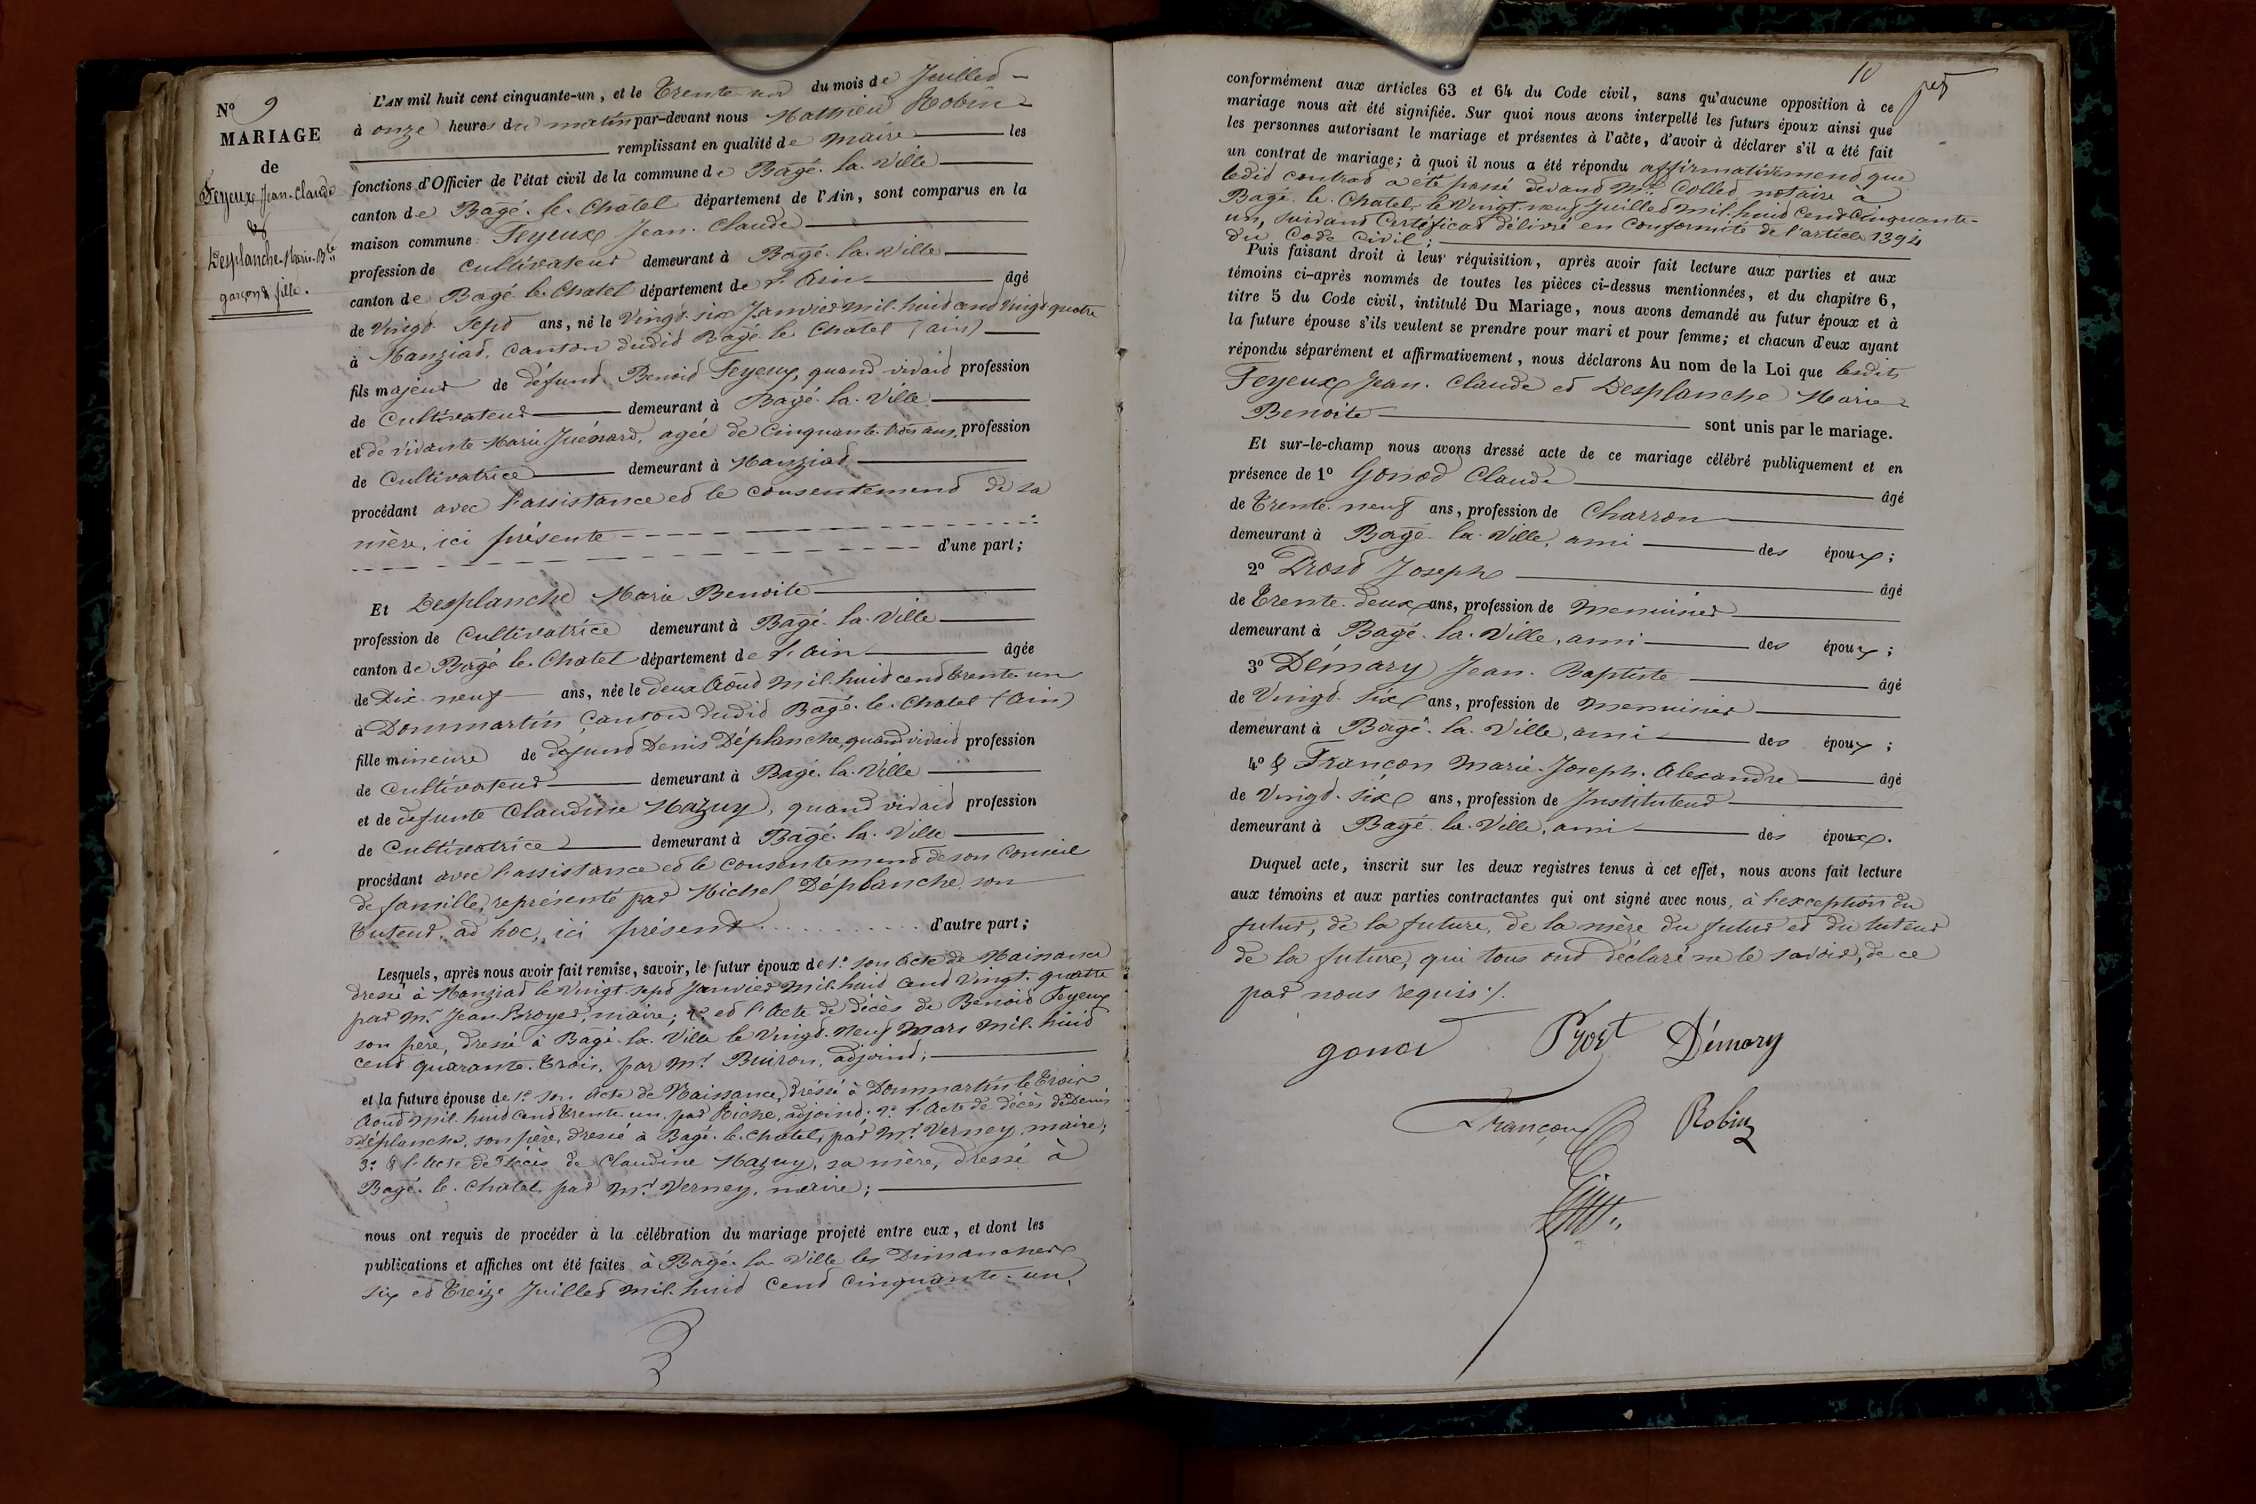 N° 9
MARIAGE
de
Feyeux Jean-Claude
&
Desplanche Marie-Bte
garçon & fille.
L'AN mil huit cent cinquante-un, et le Trente-un du mois de Juillet
à onze heures du matin par-devant nous Mathieu Robin
remplissant en qualité de Maire les
fonctions d'Officier de l'état civil de la commune de Bâgé-la-Ville
canton de Bâgé-le-Chatel département de l'Ain, sont comparus en la
maison commune Feyeux Jean-Claude
profession de cultivateur demeurant à Bâgé-la-Ville
canton de Bâgé le-Chatel département de l'Ain âgé
de Vingt-Sept ans, né le Vingt-six Janvier mil-huit cent vingt quatre
à Manziat, Canton dudit Bâgé-le-Chatel (ain)
fils majeur de défunt Benoit Feyeux, quand vivait profession
de Cultivateur demeurant à Bâgé-la-Ville
et de vivante Marie Guénard, agée de Cinquante-trois ans, profession
de Cultivatrice demeurant à Manziat
procédant avec l'assistance et le consentement de sa
mère, ici présente
d'une part;
Et Desplanche Marie Benoite
profession de Cultivatrice demeurant à Bâgé-la-Ville
canton de Bâgé le-Chatel département de l'Ain âgée
de Dix-neuf ans, née le deux Août mil-huit cent trente-un
à Dommartin, Canton dudit Bâgé-le-Chatel (Ain)
fille mineure de défunt Denis Déplanche, quand vivait profession
de Cultivateur demeurant à Bâgé-la-Ville
et de défunte Claudine Mazuy, quand vivait profession
de Cultivatrice demeurant à Bâgé-la-Ville
procédant avec l'assistance et le consentement de son Conseil
de famille, représenté par Michel Déplanche, son
Tuteur, ad hoc, ici présent d'autre part;
Lesquels, après nous avoir fait remise, savoir, le futur époux de 1° son Acte de Naissance
dressé à Manziat le Vingt-sept Janvier mil-huit cent Vingt-quatre
par Mr Jean Broyer, maire; 2° et l'Acte de décès de Benoit Feyeux
son père, dressé à Bâgé-la-Ville le Vingt-Neuf Mars mil-huit
cent quarante-trois, par Mr Buiron, adjoint;
et la future épouse de 1° son Acte de Naissance, dressé à Dommartin le Trois
Aout mil-huit cent trente-un, par Riche, adjoint; 2° l'Acte de décès de Denis
Déplanche, son père, dressé à Bâgé-le-Chatel, par Mr Verney, maire;
3° & l'Acte de décès de Claudine Mazuy, sa mère, dressé à
Bâgé-le-Chatel, par Mr Verney, maire;
nous ont requis de procéder à la célébration du mariage projeté entre eux, et dont les
publications et affiches ont été faites à Bâgé-la-Ville les Dimanches
six et treize Juillet mil-huit Cent cinquante-un,
10
conformément aux articles 63 et 64 du Code civil, sans qu'aucune opposition à ce
mariage nous ait été signifiée. Sur quoi nous avons interpellé les futurs époux ainsi que
les personnes autorisant le mariage et présentes à l'acte, d'avoir à déclarer s'il a été fait
un contrat de mariage; à quoi il nous a été répondu affirmativement que
ledit contrat a été passé devant Me Collet notaire à
Bâgé-le-Chatel, le Vingt-neuf Juillet mil-huit Cent Cinquante-
un, suivant Certificat délivré en Conformité de l'article 1394
du Code Civil;
Puis faisant droit à leur réquisition, après avoir fait lecture aux parties et aux
témoins ci-après nommés de toutes les pièces ci-dessus mentionnées, et du chapitre 6,
titre 5 du Code civil, intitulé Du Mariage, nous avons demandé au futur époux et à
la future épouse s'ils veulent se prendre pour mari et pour femme; et chacun d'eux ayant
répondu séparément et affirmativement, nous déclarons Au nom de la Loi que lesdits
Feyeux Jean-Claude et Desplanche Marie
Benoite sont unis par le mariage.
Et sur-le-champ nous avons dressé acte de ce mariage célébré publiquement et en
présence de 1° Gonod Claude âgé
de Trente-neuf ans, profession de Charron
demeurant à Bâgé-la-Ville, ami des époux;
2° Prost Joseph âgé
de Trente-deux ans, profession de Menuisier
demeurant à Bâgé-la-Ville, ami des époux;
3° Démary Jean-Baptiste âgé
de Vingt-six ans, profession de Menuisier
demeurant à Bâgé-la-Ville, ami des époux;
4° & Françon Marie-Joseph-Alexandre âgé
de Vingt-six ans, profession de Instituteur
demeurant à Bâgé-la-Ville, ami des époux.
Duquel acte, inscrit sur les deux registres tenus à cet effet, nous avons fait lecture
aux témoins et aux parties contractantes qui ont signé avec nous, à l'exception du
futur, de la future, de la mère du futur et du tuteur
de la future, qui tous ont déclaré ne le savoir, de ce
par nous requis./.
gonod Prost Démary
Françon Robin